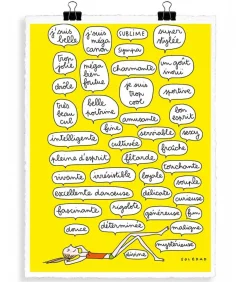 j'suis belle
j'suis méga canon
SUBLIME
super stylée
sympa
trop jolie
méga bien foutue
charmante
un goût inouï
drôle
je suis trop cool
sportive
très beau cul
belle poitrine
amusante
bon esprit
fine
serviable
sexy
intelligente
cultivée
fraîche
pleine d'esprit
fêtarde
couchante
vivante
irrésistible
loyale
souple
excellente danseuse
délicate
curieuse
fascinante
rigolote
généreuse
fun
douce
déterminée
maligne
mystérieuse
divine
SOLEDAD